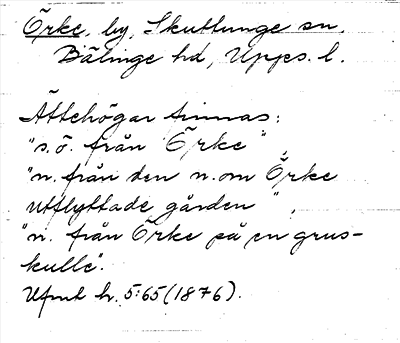 Örke, by, Skuttunge sn,
Bälinge hd, Upps. l.
Ättehögar finnas:
"s.ö. från Örke",
"n. från den n. om Örke
utflyttade gården",
"n. från Örke på en grus-
kulle".
Ufmt h. 5:65 (1876).